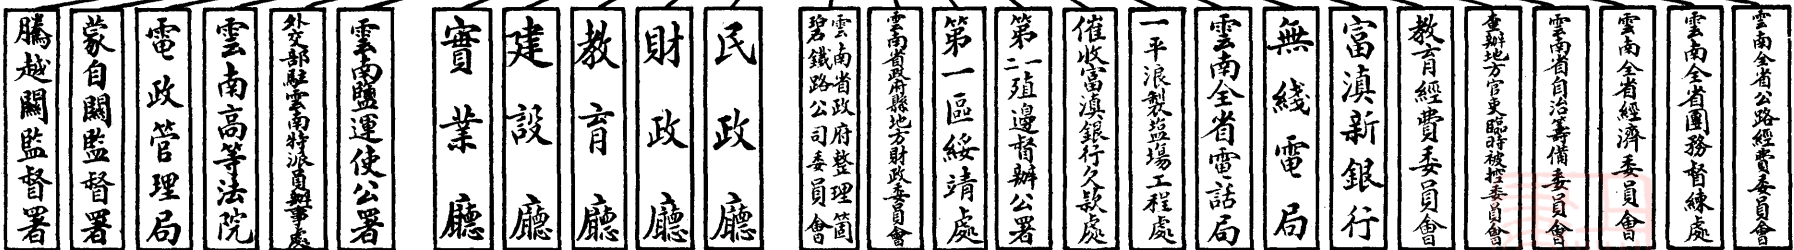 雲南全省公路經費委員會
雲南全省團務督練處
雲南全省經濟委員會
雲南省自治籌備委員會
查辦地方官吏臨時被控委員會
教育經費委員會
富滇新銀行
無綫電局
雲南全省電話局
一平浪製盐場工程處
催收富滇銀行欠款處
第一二殖邊督辦公署
第一區綏靖處
雲南省政府縣地方財政委員會
雲南省政府整理箇碧鐵路公司委員會
民政廳
財政廳
教育廳
建設廳
實業廳
雲南鹽運使公署
外交部駐雲南特派員辦事處
雲南高等法院
電政管理局
蒙自關監督署
騰越關監督署